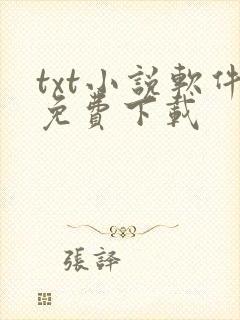 txt小説軟件
免費下載
張譯